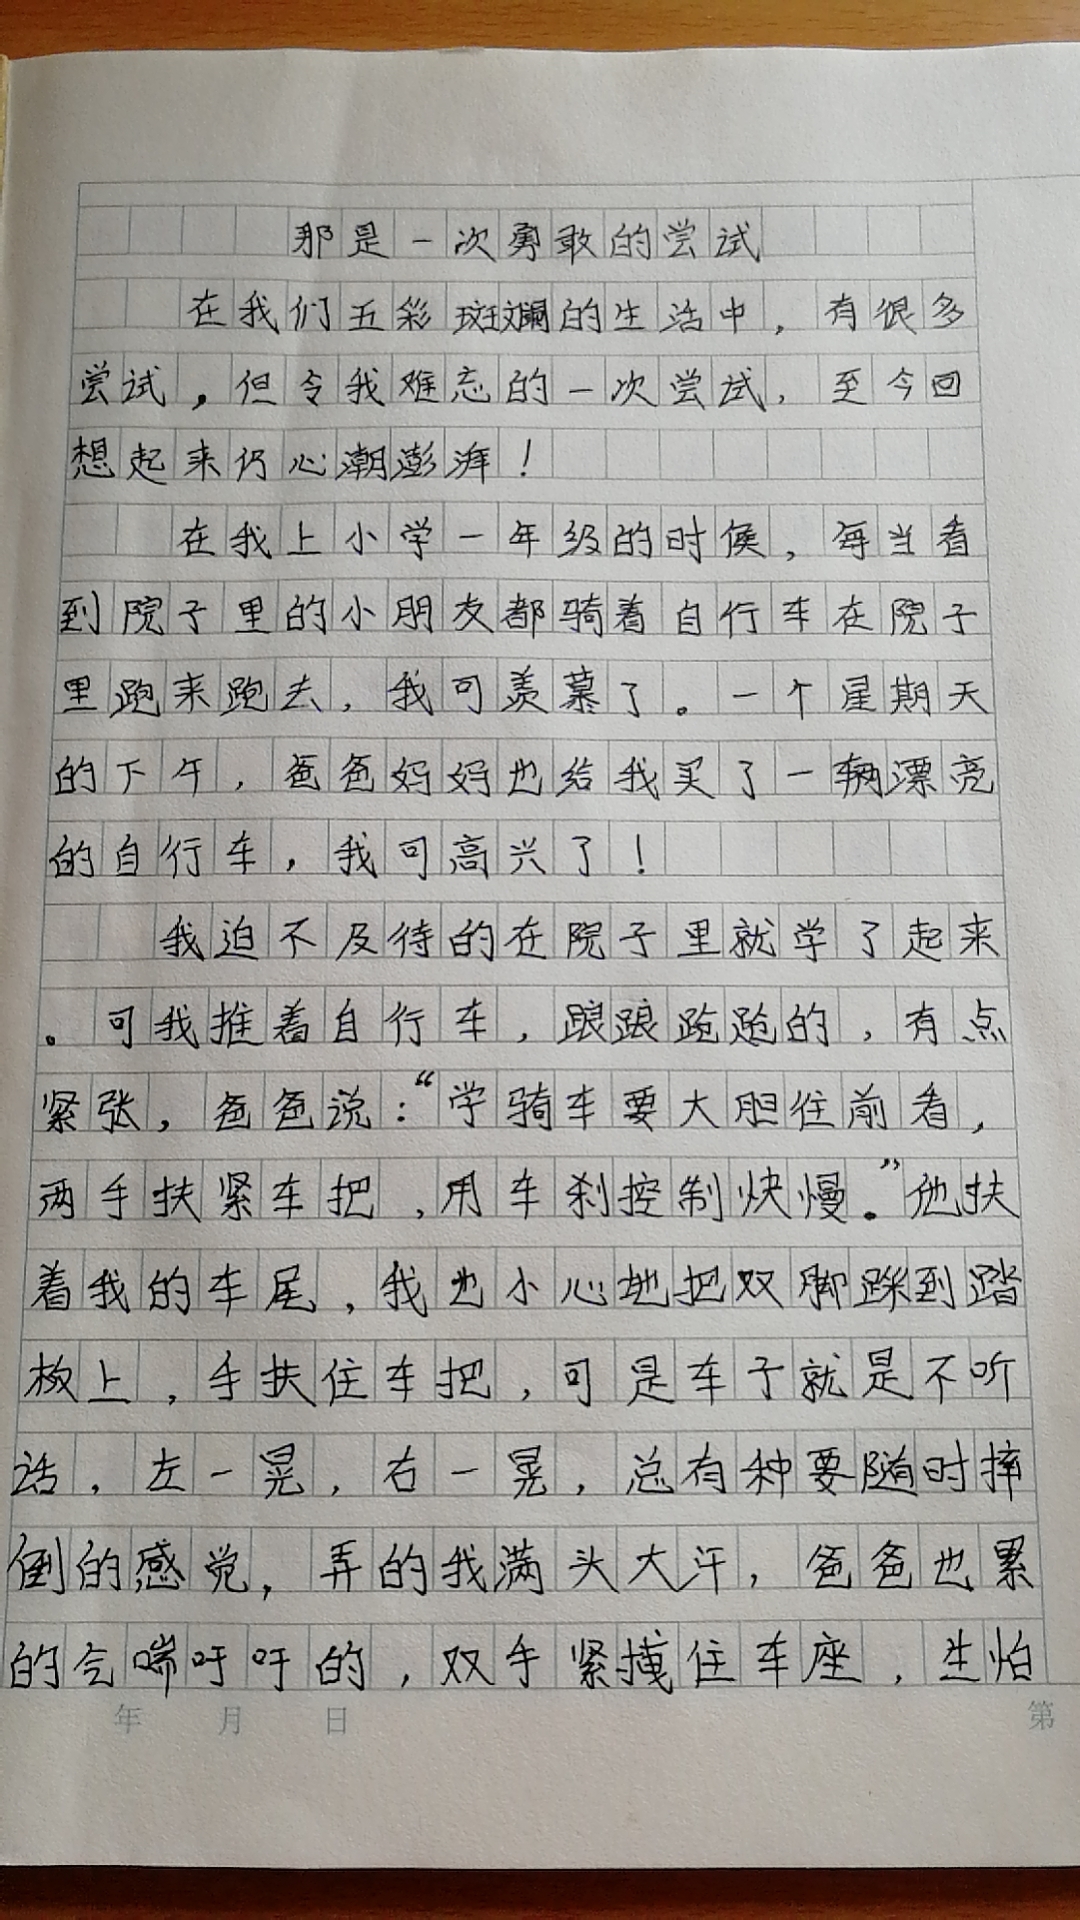 那是一次勇敢的尝试
在我们五彩斑斓的生活中，有很多
尝试，但令我难忘的一次尝试，至今回
想起来仍心潮澎湃！
在我上小学一年级的时候，每当看
到院子里的小朋友都骑着自行车在院子
里跑来跑去，我可羡慕了。一个星期天
的下午，爸爸妈妈也给我买了一辆漂亮
的自行车，我可高兴了！
我迫不及待的在院子里就学了起来
。可我推着自行车，踉踉跄跄的，有点
紧张，爸爸说：“学骑车要大胆往前看，
两手扶紧车把，用车刹控制快慢。”他扶
着我的车尾，我也小心地把双脚踩到踏
板上，手扶住车把，可是车子就是不听
话，左一晃，右一晃，总有种要随时摔
倒的感觉，弄的我满头大汗，爸爸也累
的气喘吁吁的，双手紧拽住车座，生怕
年 月 日
第